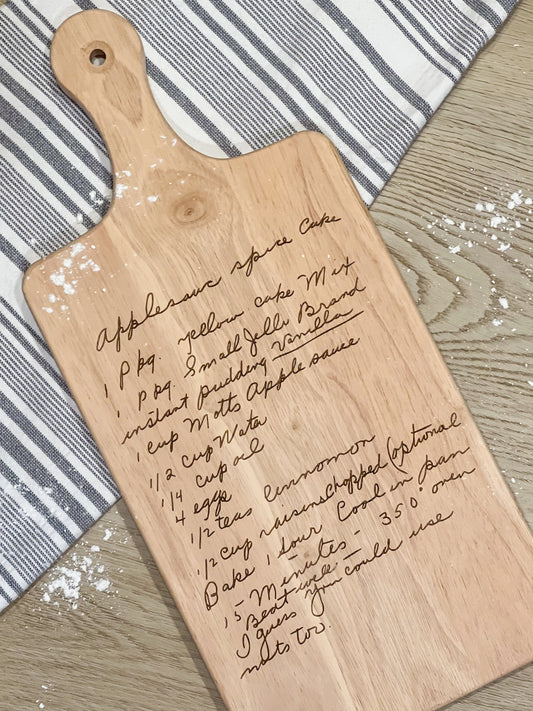 Applesauc spice Cake
1 Pkg. yellow cake Mix
1 pkg. Small Jello Brand
instant pudding Vanilla
1 cup Motts Apple sauce
1/2 cup Water
1/4 cup oil
4 eggs
1/2 teas Cinnomon
1/2 cup raisins chopped (optional
Bake 1 hour Cool in pan
15 Minutes - 350° oven
Beat well -
I guess you could use
nuts too.